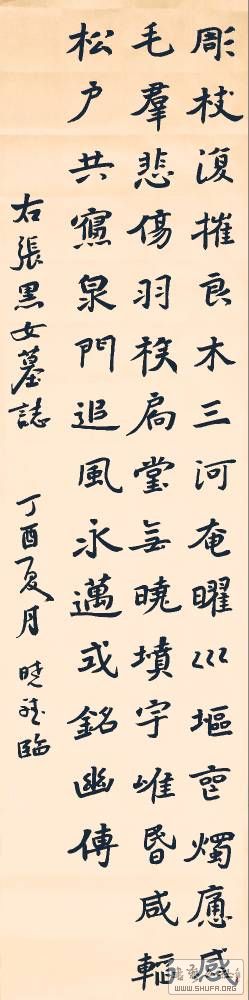 彫枝復摧良木三河奄曜巛塸喪燭慟感
毛羣悲傷羽族扃堂無曉墳宇唯昏咸韜
松戶共寢泉門追風永邁式銘幽傳
右張黑女墓誌 丁酉夏月 曉臨
WWW.SHUFA.ORG